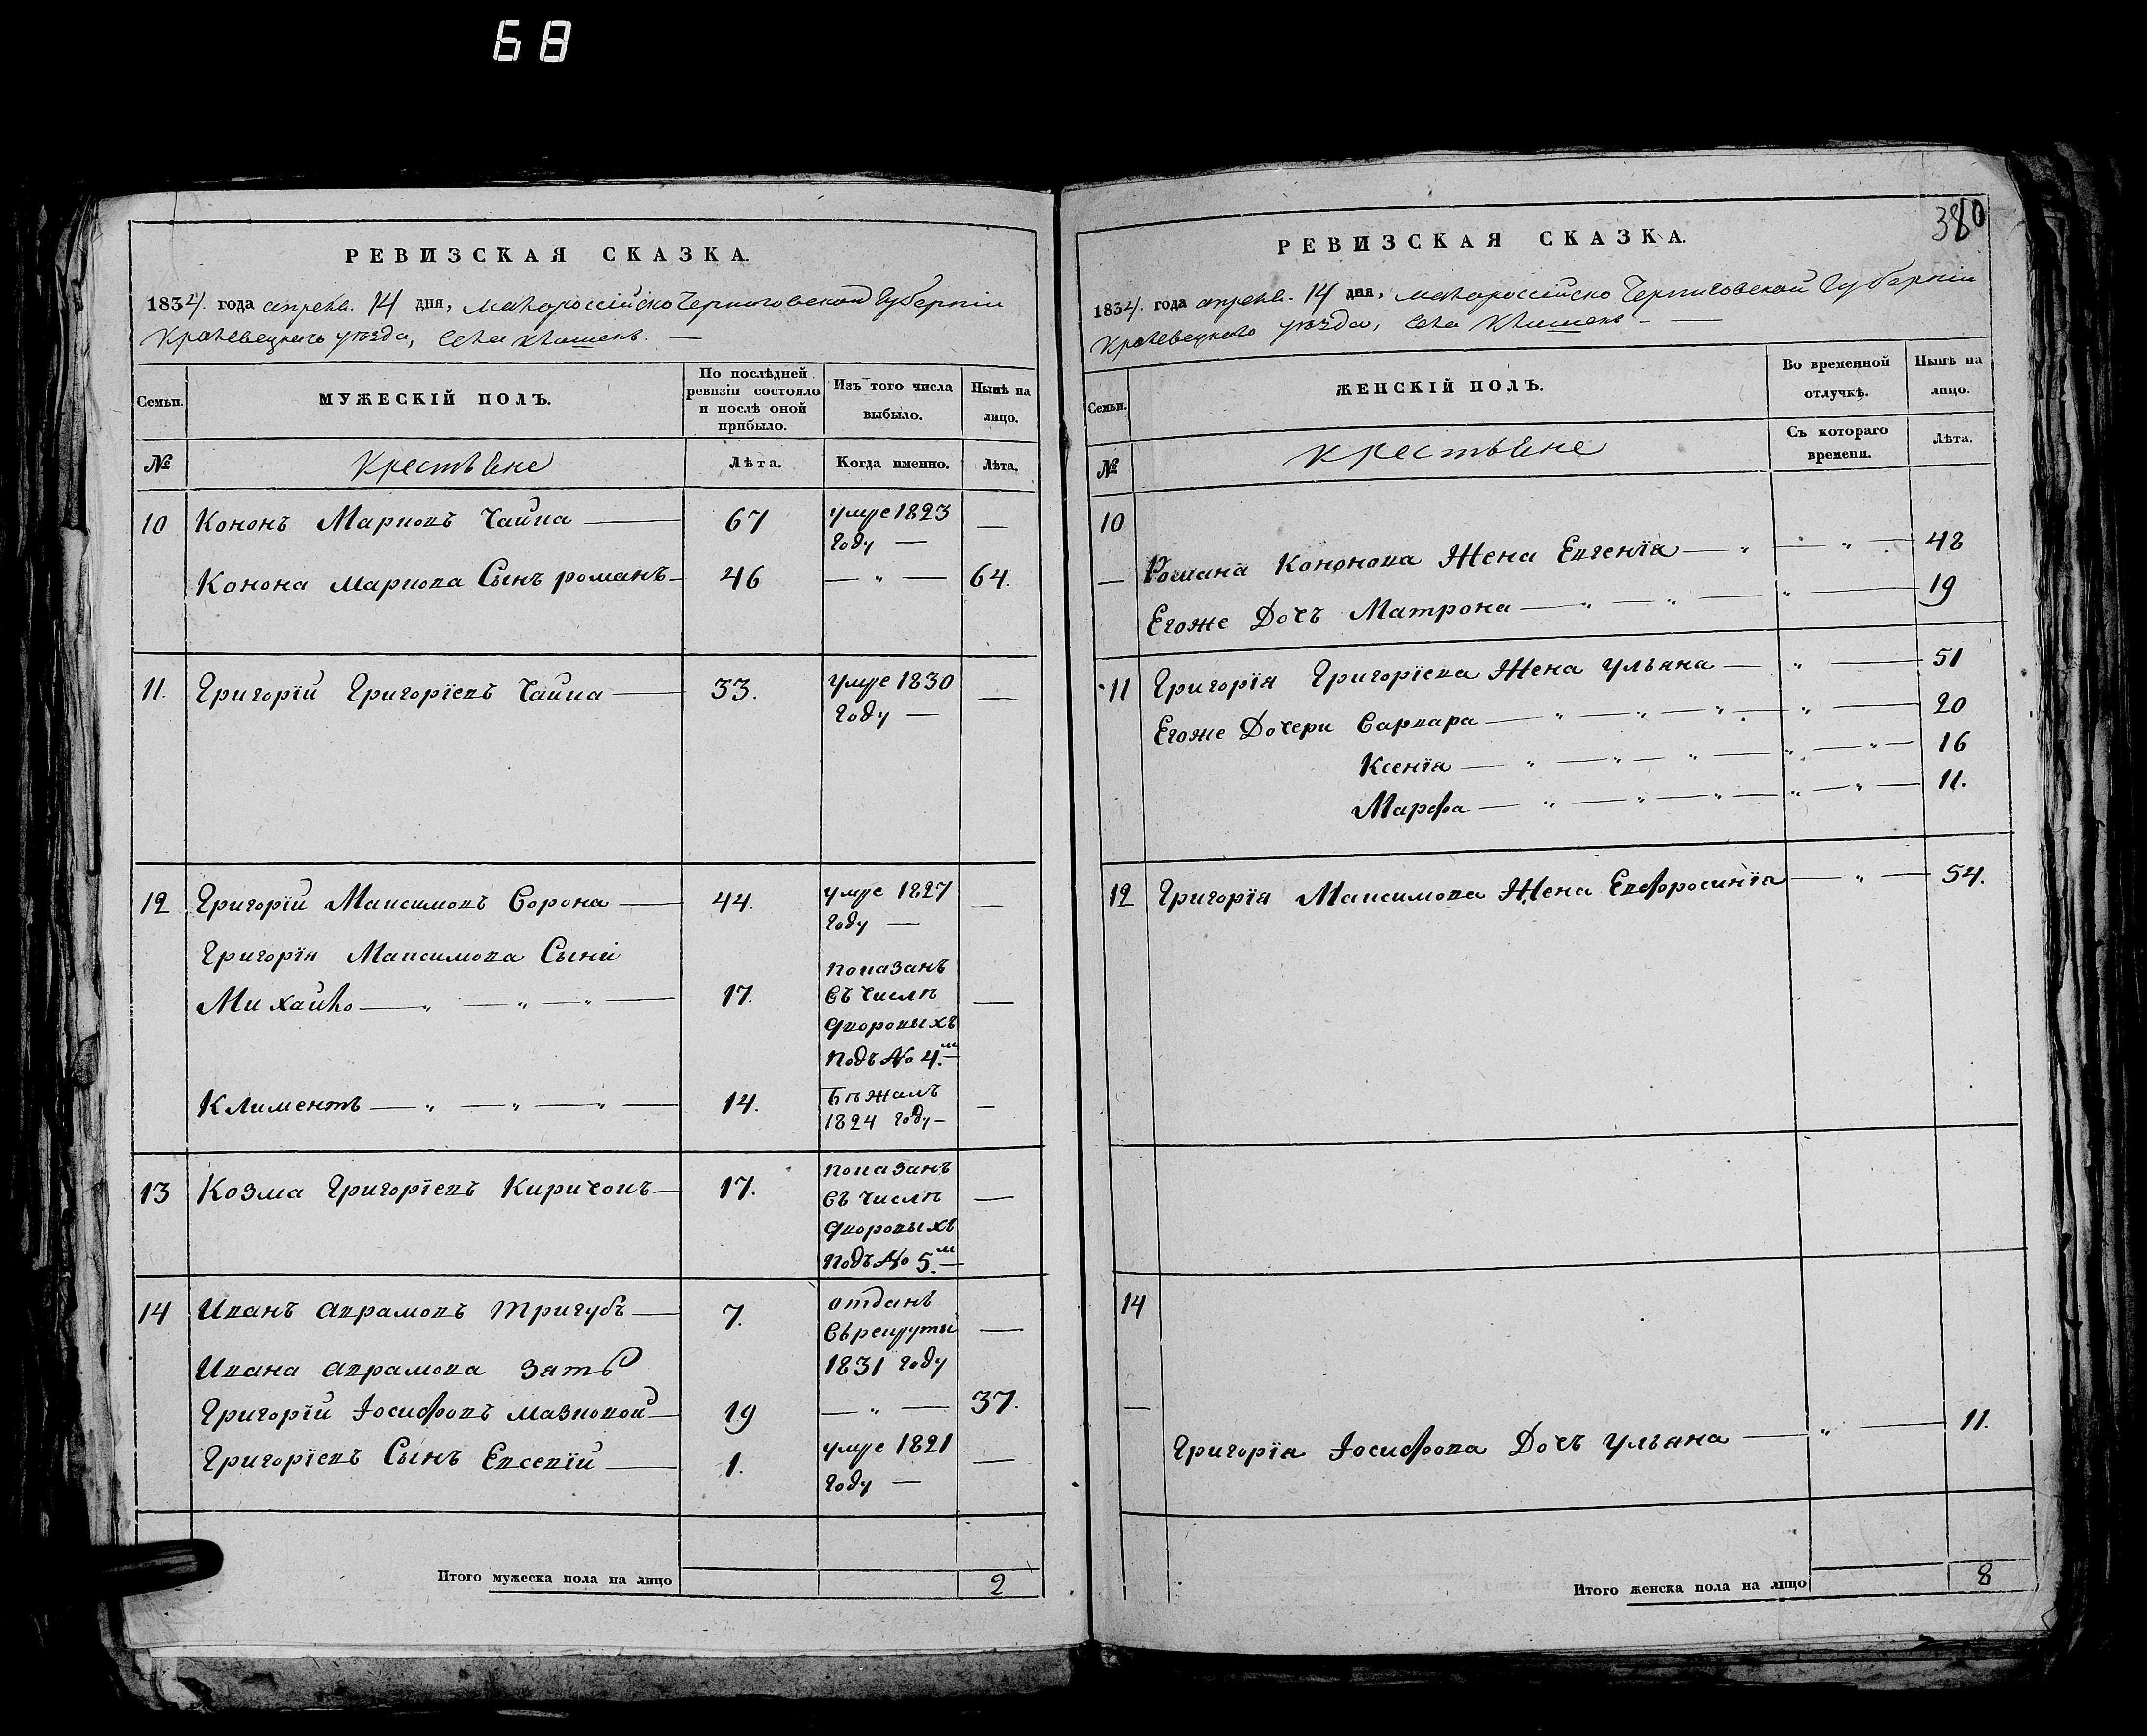 68
РЕВИЗСКАЯ СКАЗКА.
1834. года апреля. 14 дня, малороссійско Черниговской Губерніи
Кролевецкаго уѣзда, села Клишекъ. —
Семьи.
МУЖЕСКІЙ ПОЛЪ.
По послѣдней ревизіи состояло и послѣ оной прибыло.
Изъ того числа выбыло.
Нынѣ на лицо.
№
Крестьяне
Лѣта.
Когда именно.
Лѣта.
10 Кононъ Марковъ Чайка — 67 умре 1823 году — —
Конона Маркова Сынъ романъ — 46 — „ — 64.
11. Григорій Григоріевъ Чайка — 33. умре 1830 году — —
12 Григорій Максимовъ Ворона — 44. умре 1827 году — —
Григорія Максимова Сыны
Михайло — „ — „ — „ — 17. показанъ въ числѣ дворовыхъ подъ № 4.м — —
Климентъ — „ — „ — „ — 14. Бѣжалъ 1824 году — —
13 Козма Григоріевъ Киричокъ — 17. показанъ въ числѣ дворовыхъ подъ № 5.м — —
14 Иванъ Аврамовъ Тригубъ — 7. отданъ въ рекруты 1831 году —
Ивана Аврамова зять
Григорій Іосифовъ Мазновой — 19 — „ — 37.
Григоріевъ Сынъ Евсевій — 1. умре 1821 году — —
Итого мужеска пола на лицо 2
380
РЕВИЗСКАЯ СКАЗКА.
1834. года апреля. 14 дня, малороссійско Черниговской Губерніи
Кролевецкаго уѣзда, села Клишекъ — —
Семьи.
ЖЕНСКІЙ ПОЛЪ.
Во временной отлучкѣ.
Нынѣ на лицо.
№
Крестьяне
Съ котораго времени.
Лѣта.
10
— Романа Кононова Жена Евгенія — „ — „ — 48
Егоже Дочь Матрона — „ — „ — „ — 19
11 Григорія Григоріева Жена Ульяна — „ — 51
Егоже Дочери Варвара — „ — „ — „ — „ — 20
Ксенія — „ — „ — „ — „ — „ — 16
Марфа — „ — „ — „ — „ — „ — 11.
12 Григорія Максимова Жена Евфросинія — „ — 54.
14
—
Григорія Іосифова Дочь Ульяна — „ — 11.
Итого женска пола на лицо 8